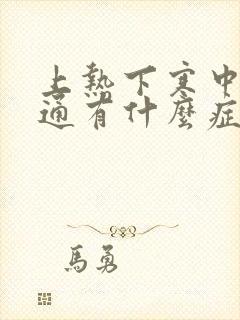 上熱下寒中
通有什麼症
馬勇